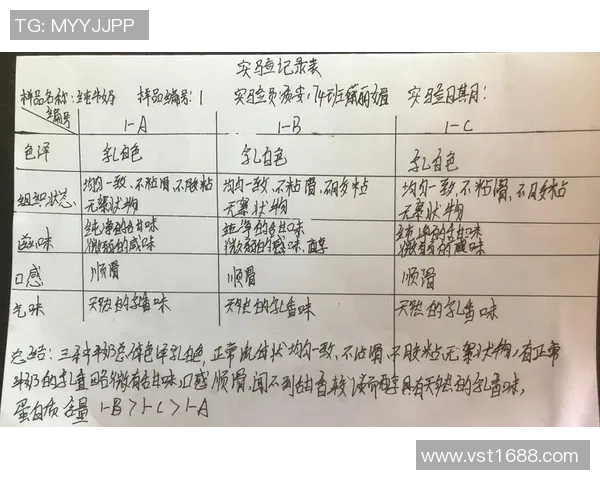 TG: MYYJJPP
实验记录表
样品名称:纯牛奶 样品编号:1 实验员:
实验日期:
编号 1-A 1-B 1-C
色泽 乳白色 乳白色 乳白色
组织状态 均匀一致,不粘滑,不胶粘 均匀一致,不粘滑,不胶粘 均匀一致,不粘滑,不胶粘
无絮状物 无絮状物 无絮状物
滋味 纯净的甘味 纯净的甘味 纯净的甘味
微弱的咸味 微弱的咸味 微弱的咸味
口感 顺滑 顺滑 顺滑
气味 天然的乳香味 天然的乳香味 天然的乳香味
总结:三种牛奶总体色泽乳白色,正常流体状均匀一致,不粘滑,不胶粘无絮状物,有正常
牛奶的 略微有甘味,口感顺滑,闻不到 具有天然的乳香味,
蛋白质含量 1-B>1-C>1-A
www.vst1688.com